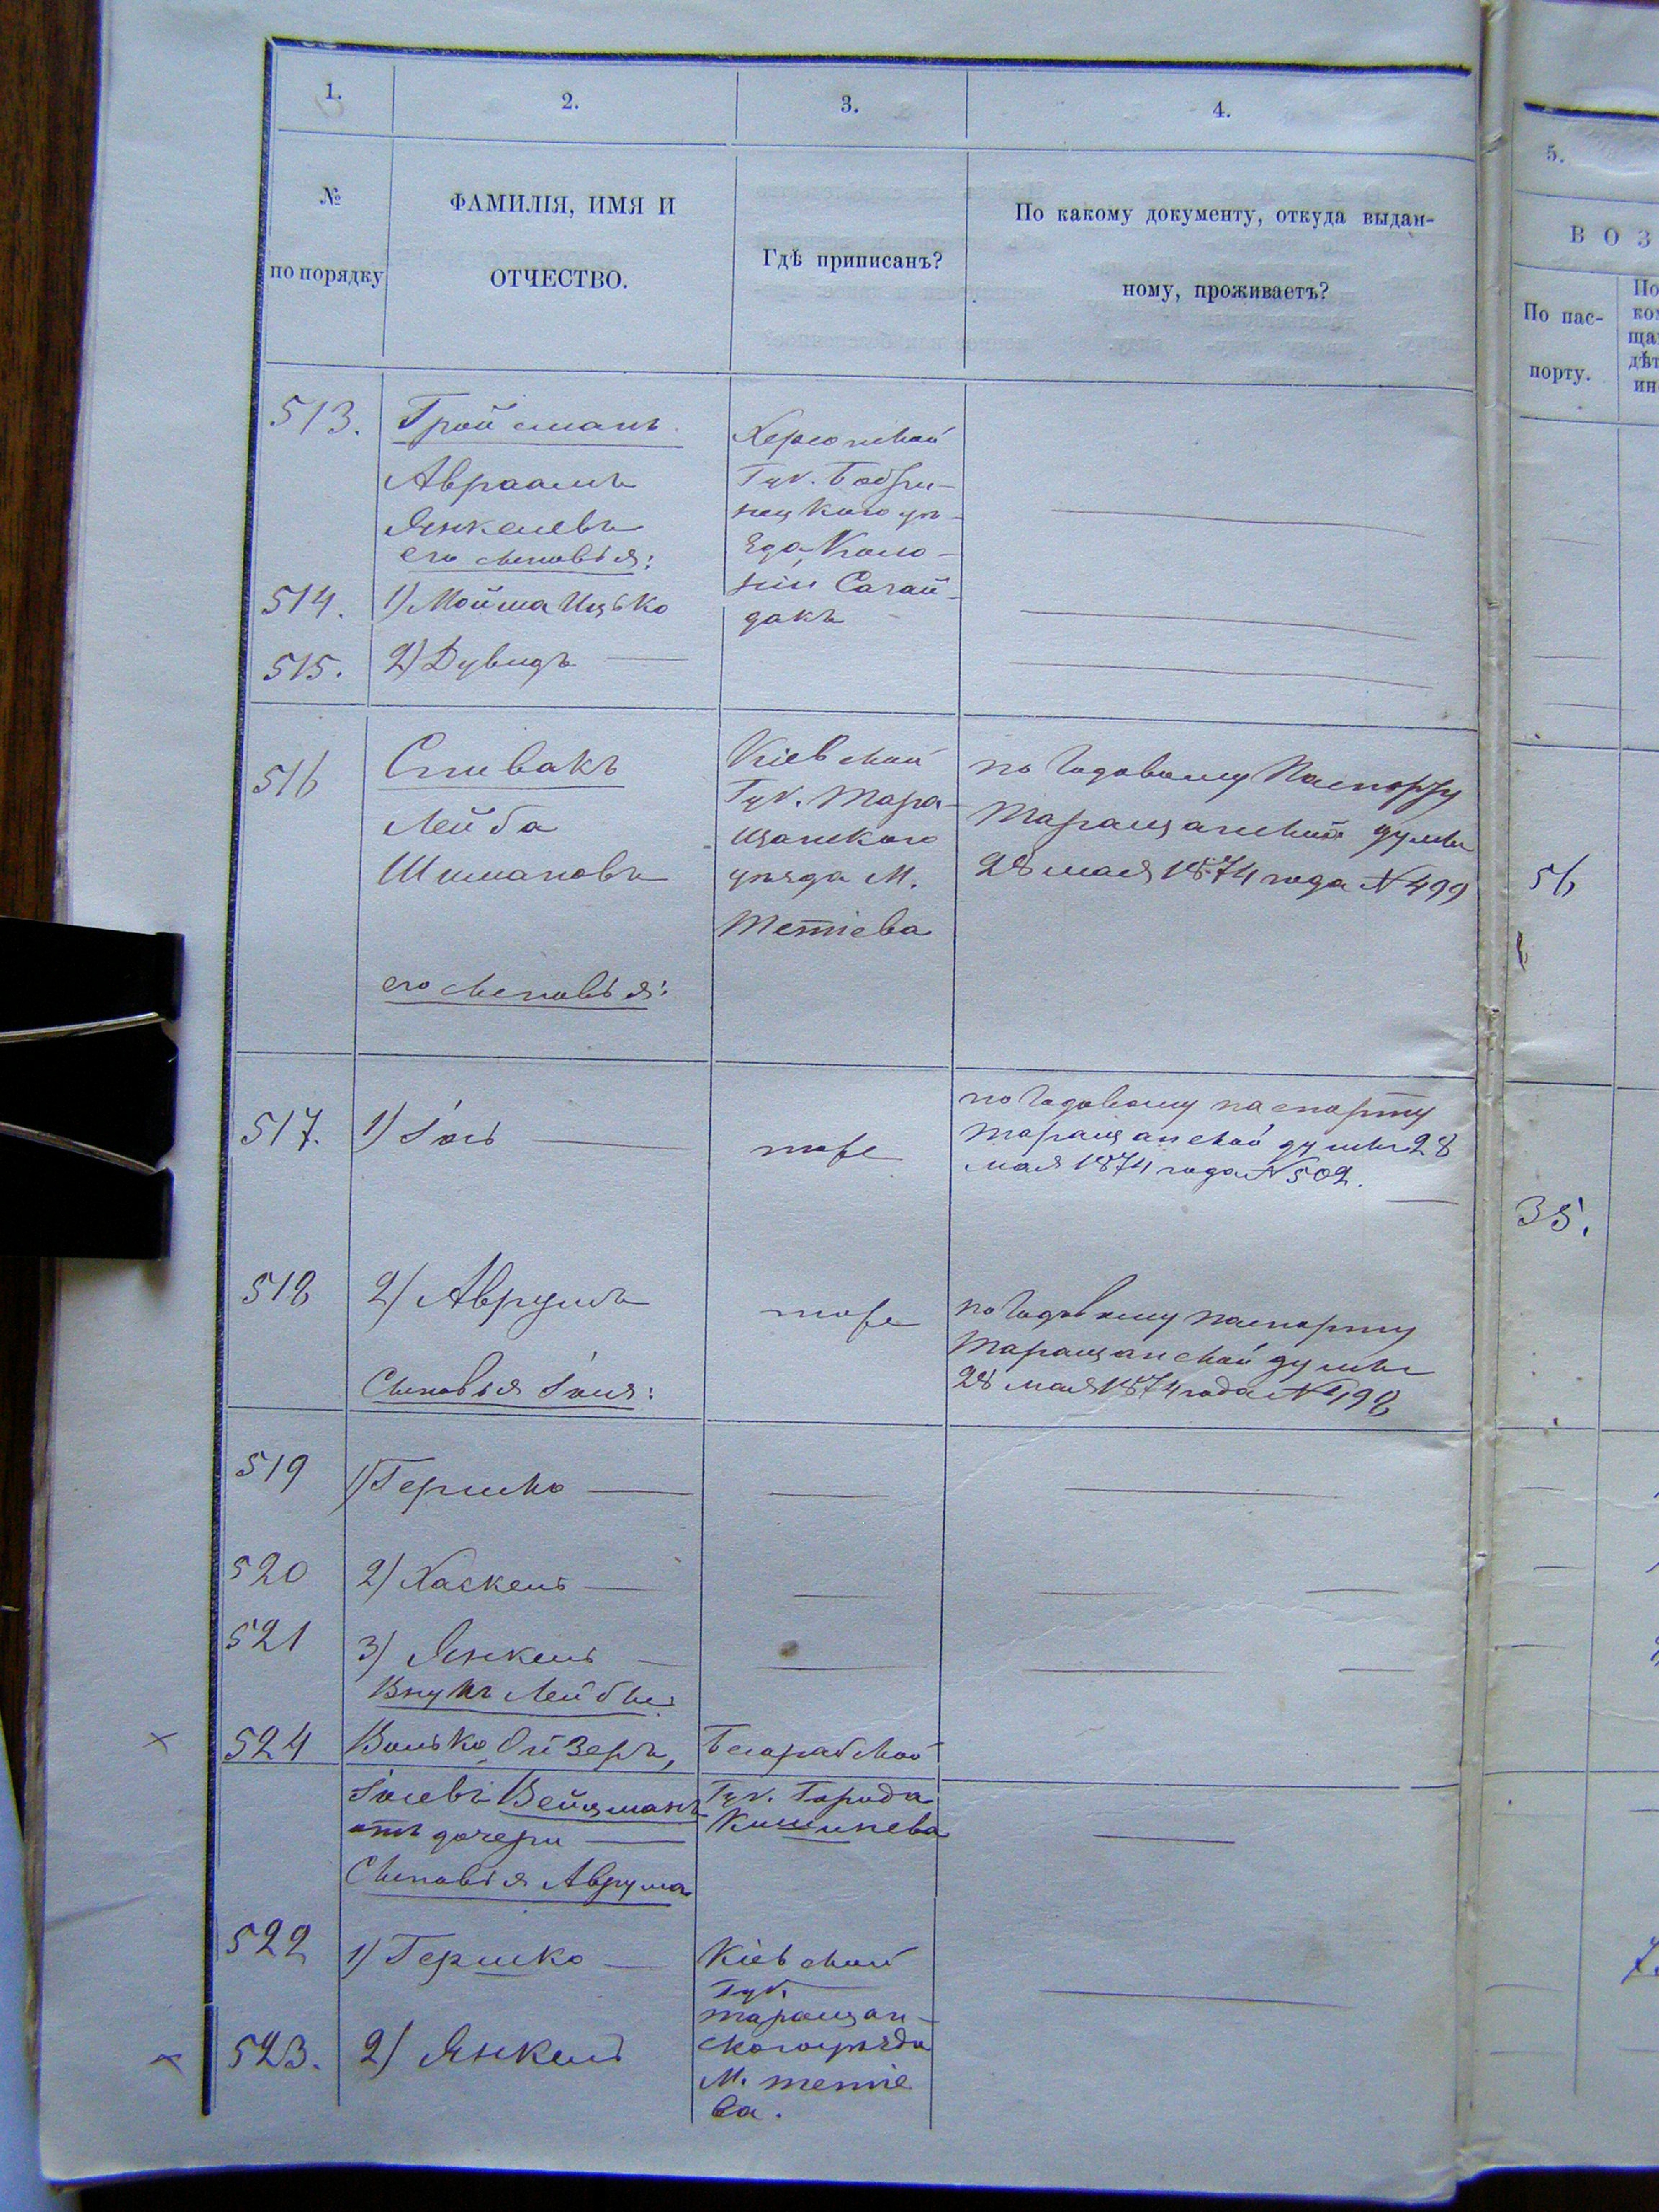 1.
2.
3.
4.
№
по порядку
ФАМИЛІЯ, ИМЯ И
ОТЧЕСТВО.
Гдѣ приписанъ?
По какому документу, откуда выдан-
ному, проживаетъ?
513.
Гройсманъ
Авраамъ
Янкелевъ
его сыновья:
Херсонской
Губ. Бобри-
нецкого уѣ-
зда Коло-
ніи Сагай-
дакъ
514.
1) Мойша Ицько
515.
2) Дувидъ
516
Спивакъ
Лейба
Шимановъ
его сыновья:
Кіевской
Губ. Тара-
щанского
уѣзда М.
Тетіева
по Годовому Паспорту
Таращанской думы
28 мая 1874 года № 499
517.
1) Іось
тоже
по Годовому паспорту
Таращанской думы 28
мая 1874 года № 502.
518
2) Аврумъ
Сыновья Іося:
тоже
по Годовому паспорту
Таращанской думы
28 мая 1874 года № 498
519
1) Гершко
520
2) Хаскель
521
3) Янкель
Внукъ Лейбы:
524
Волько Ойзеръ,
Іосевъ Вейцманъ
отъ дочери
Бесарабской
Губ. Города
Кишинева
Сыновья Аврума
522
1) Гершко
Кіевской
Губ.
Таращан-
ского уѣзда
М. Тетіе
ва.
523.
2) Янкель
5.
ВОЗ
По пас-
порту.
По
ко
ща
дѣт
ин
56
35.